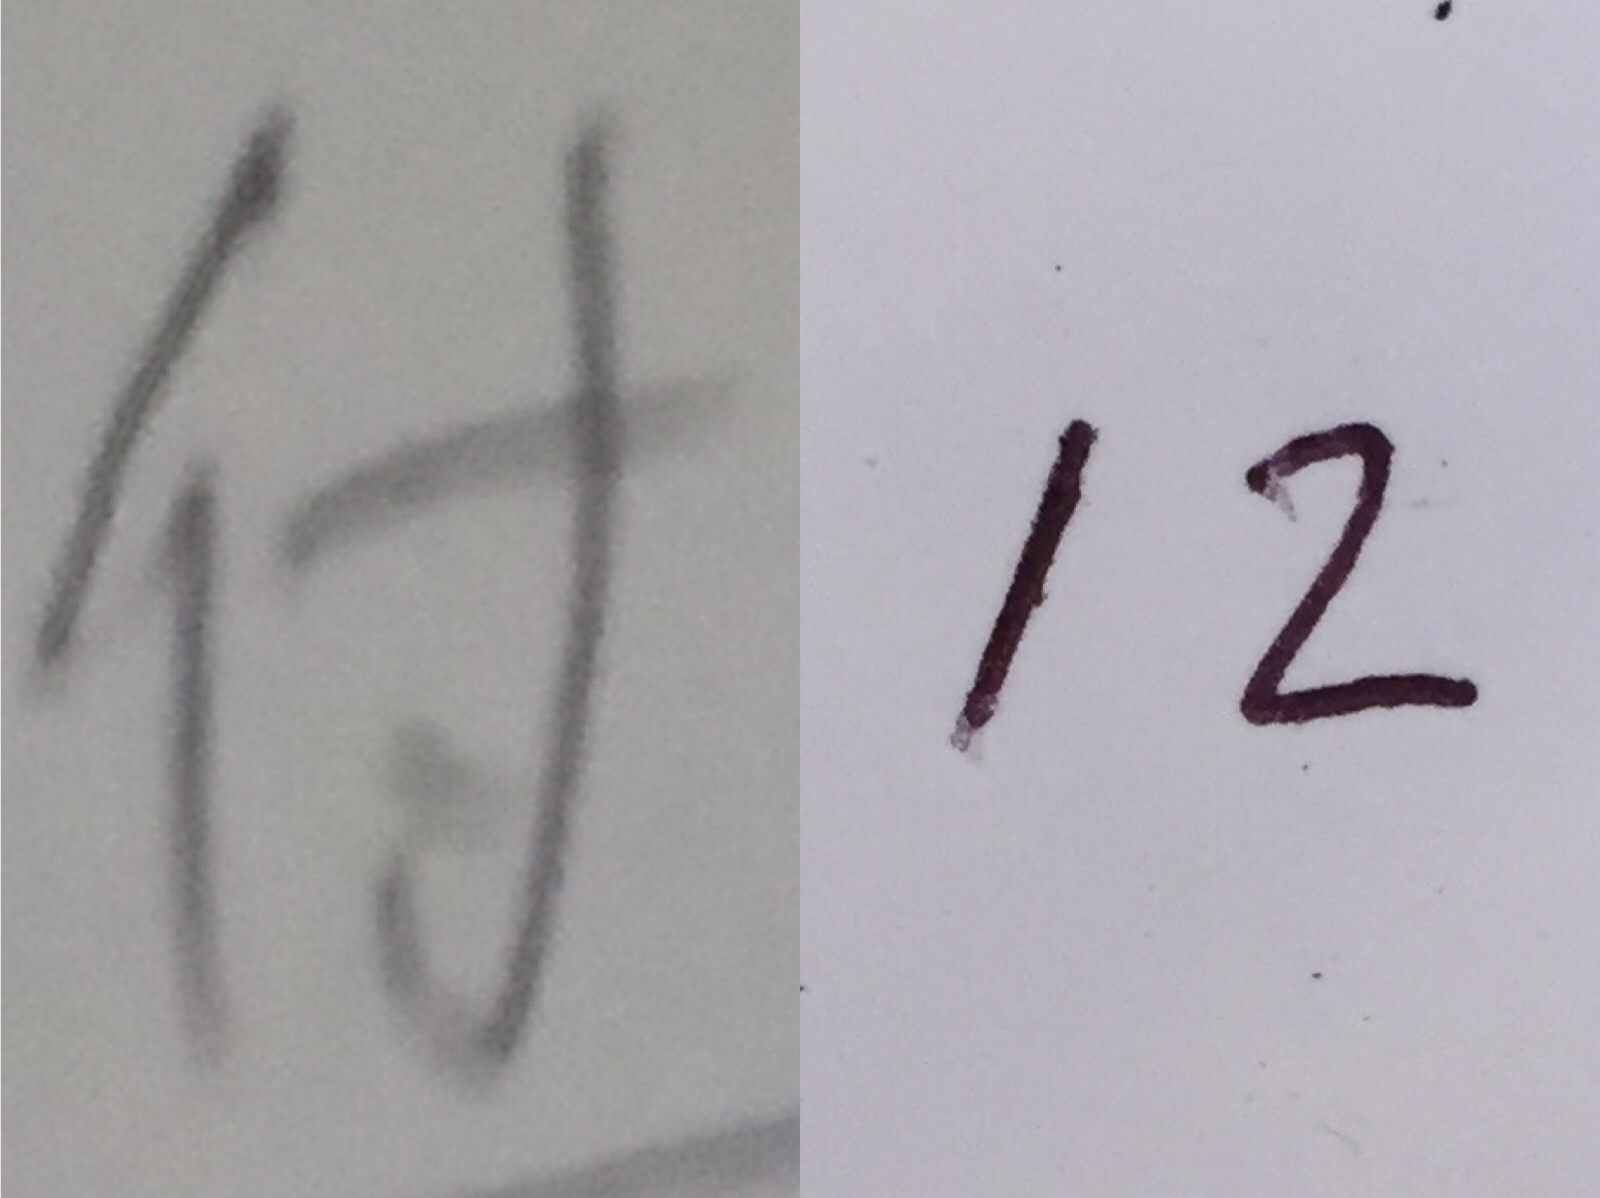 付
12